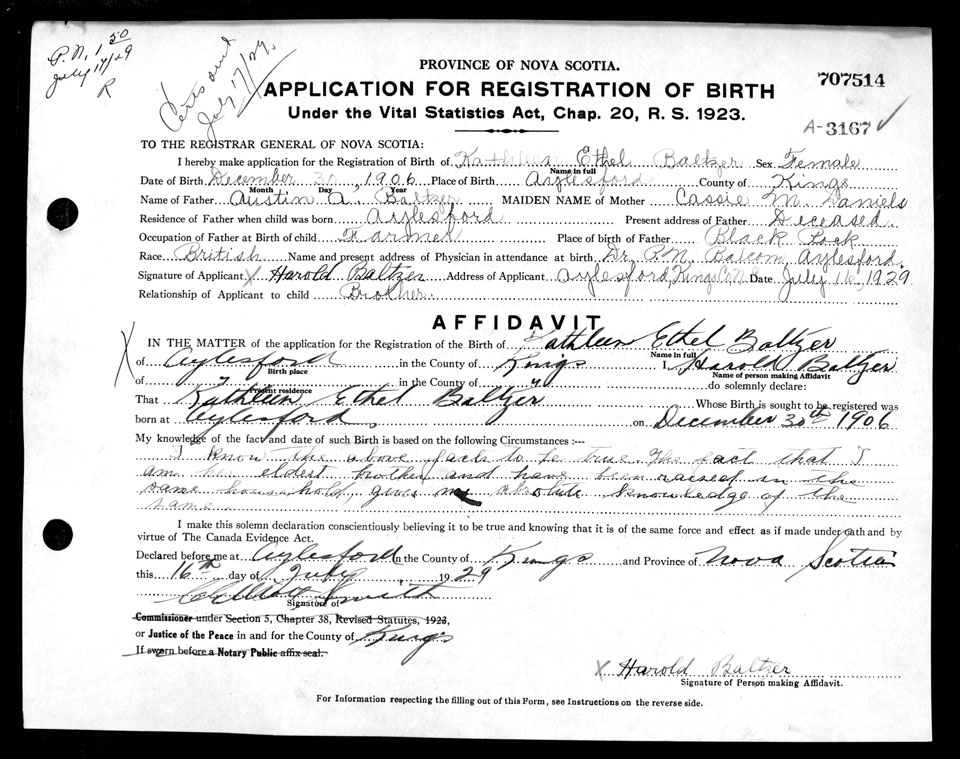 P.N. 1 50
July 17/29
R
Certs sent
July 17/29.
PROVINCE OF NOVA SCOTIA.
707514
APPLICATION FOR REGISTRATION OF BIRTH
Under the Vital Statistics Act, Chap. 20, R. S. 1923.
A-3167 ✓
TO THE REGISTRAR GENERAL OF NOVA SCOTIA:
I hereby make application for the Registration of Birth of Kathleen Ethel Baltzer Sex Female
Name in full
Date of Birth December 30, 1906 Place of Birth Aylesford County of Kings
Month Day Year
Name of Father Austin A. Baltzer MAIDEN NAME of Mother Cassie M. Daniels
Residence of Father when child was born Aylesford Present address of Father Deceased
Occupation of Father at Birth of child Farmer Place of birth of Father Black Rock
Race British Name and present address of Physician in attendance at birth Dr. P.N. Balcom, Aylesford.
Signature of Applicant X Harold Baltzer Address of Applicant Aylesford, Kings Co, N.S. Date July 16, 1929
Relationship of Applicant to child Brother.
AFFIDAVIT
X IN THE MATTER of the application for Registration of the Birth of Kathleen Ethel Baltzer
Name in full
of Aylesford in the County of Kings I, Harold Baltzer
Birth place Name of person making Affidavit
of " in the County of " do solemnly declare:
Present residence
That Kathleen Ethel Baltzer Whose Birth is sought to be registered was
born at Aylesford, on December 30th 1906
My knowledge of the fact and date of such Birth is based on the following Circumstances :--
I know the above facts to be true. The fact that I
am her eldest brother and have been raised in the
same household, gives me absolute knowledge of the
same.
I make this solemn declaration conscientiously believing it to be true and knowing that it is of the same force and effect as if made under oath and by
virtue of The Canada Evidence Act.
Declared before me at Aylesford in the County of Kings and Province of Nova Scotia
this 16th day of July, 1929
Smith
Signature of
Commissioner under Section 5, Chapter 38, Revised Statutes, 1923,
or Justice of the Peace in and for the County of Kings
If sworn before a Notary Public affix seal.
X Harold Baltzer
Signature of Person making Affidavit.
For Information respecting the filling out of this Form, see Instructions on the reverse side.